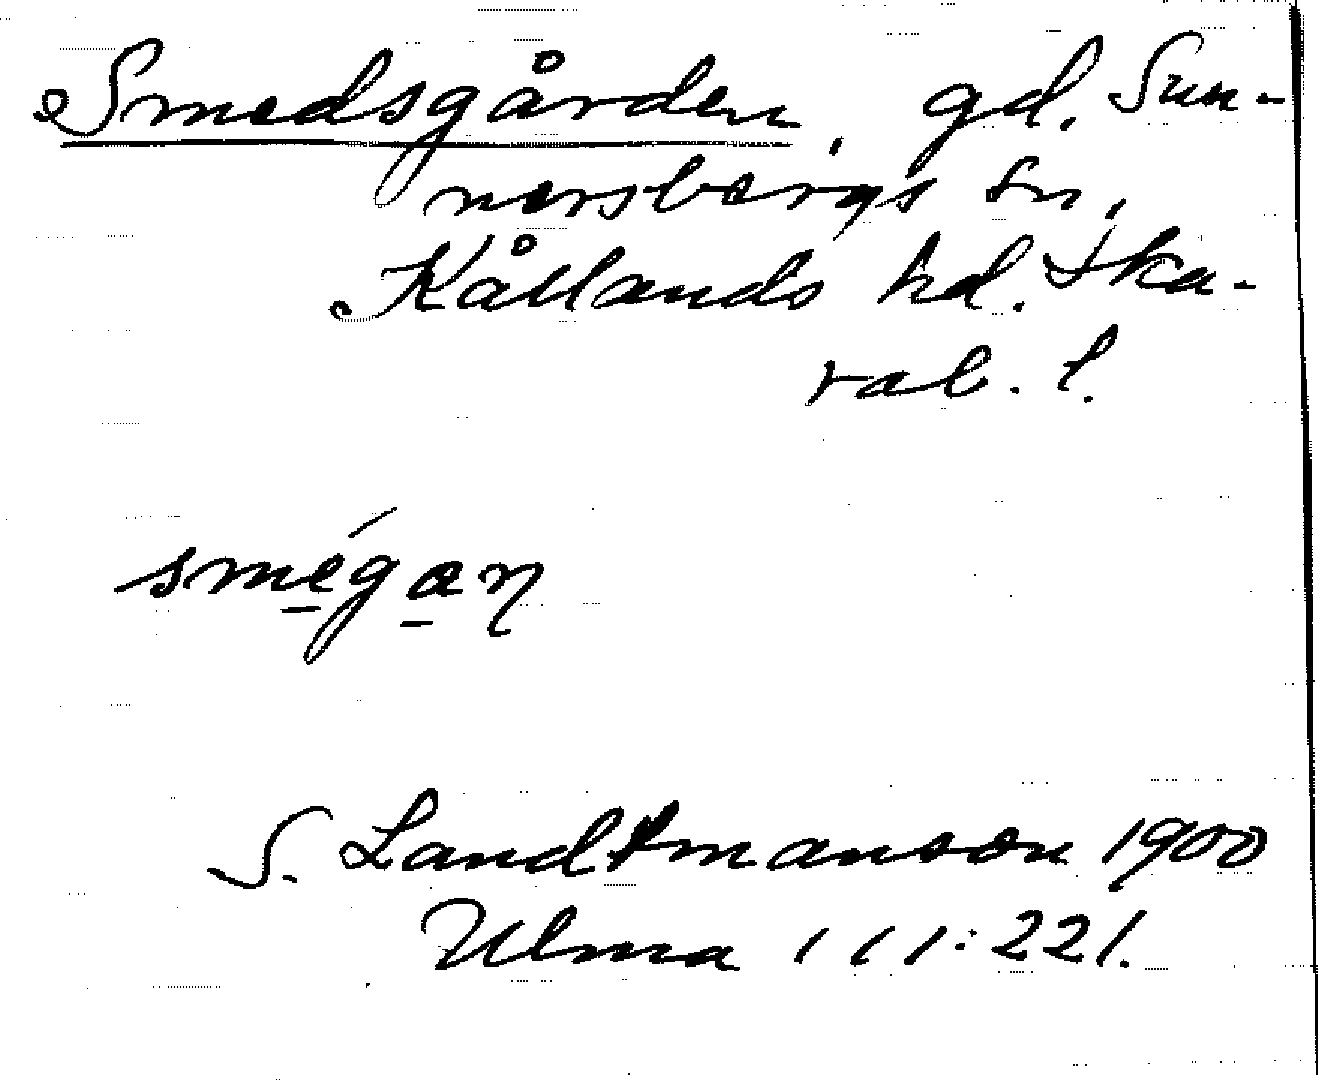 Smedsgården, gd. Sun-
nersbergs sn,
Kållands hd. Ska-
rab. l.
smégan
S. Landtmanson 1900
Ulma 111:221.